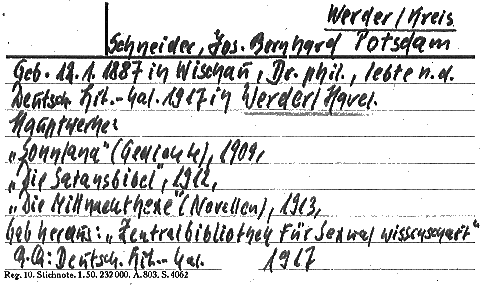 Werder/Kreis
Schneider, Jos. Bernhard Potsdam
Geb. 12.1.1887 in Wischau, Dr. phil., lebte n.d.
Deutsch. Lit.-Kal. 1917 in Werder/Havel.
Hauptwerke:
"Sonnland" (Gedichte), 1909,
"Die Satansbibel", 1912,
"Die Mitnachthexe" (Novellen), 1913,
Gab heraus: "Zentralbibliothek für Sexualwissenschaft"
Q.A: Deutsch. Lit.-Kal. 1917
Reg. 10. Stichnote. 1. 50. 232 000. A. 803. S. 4062